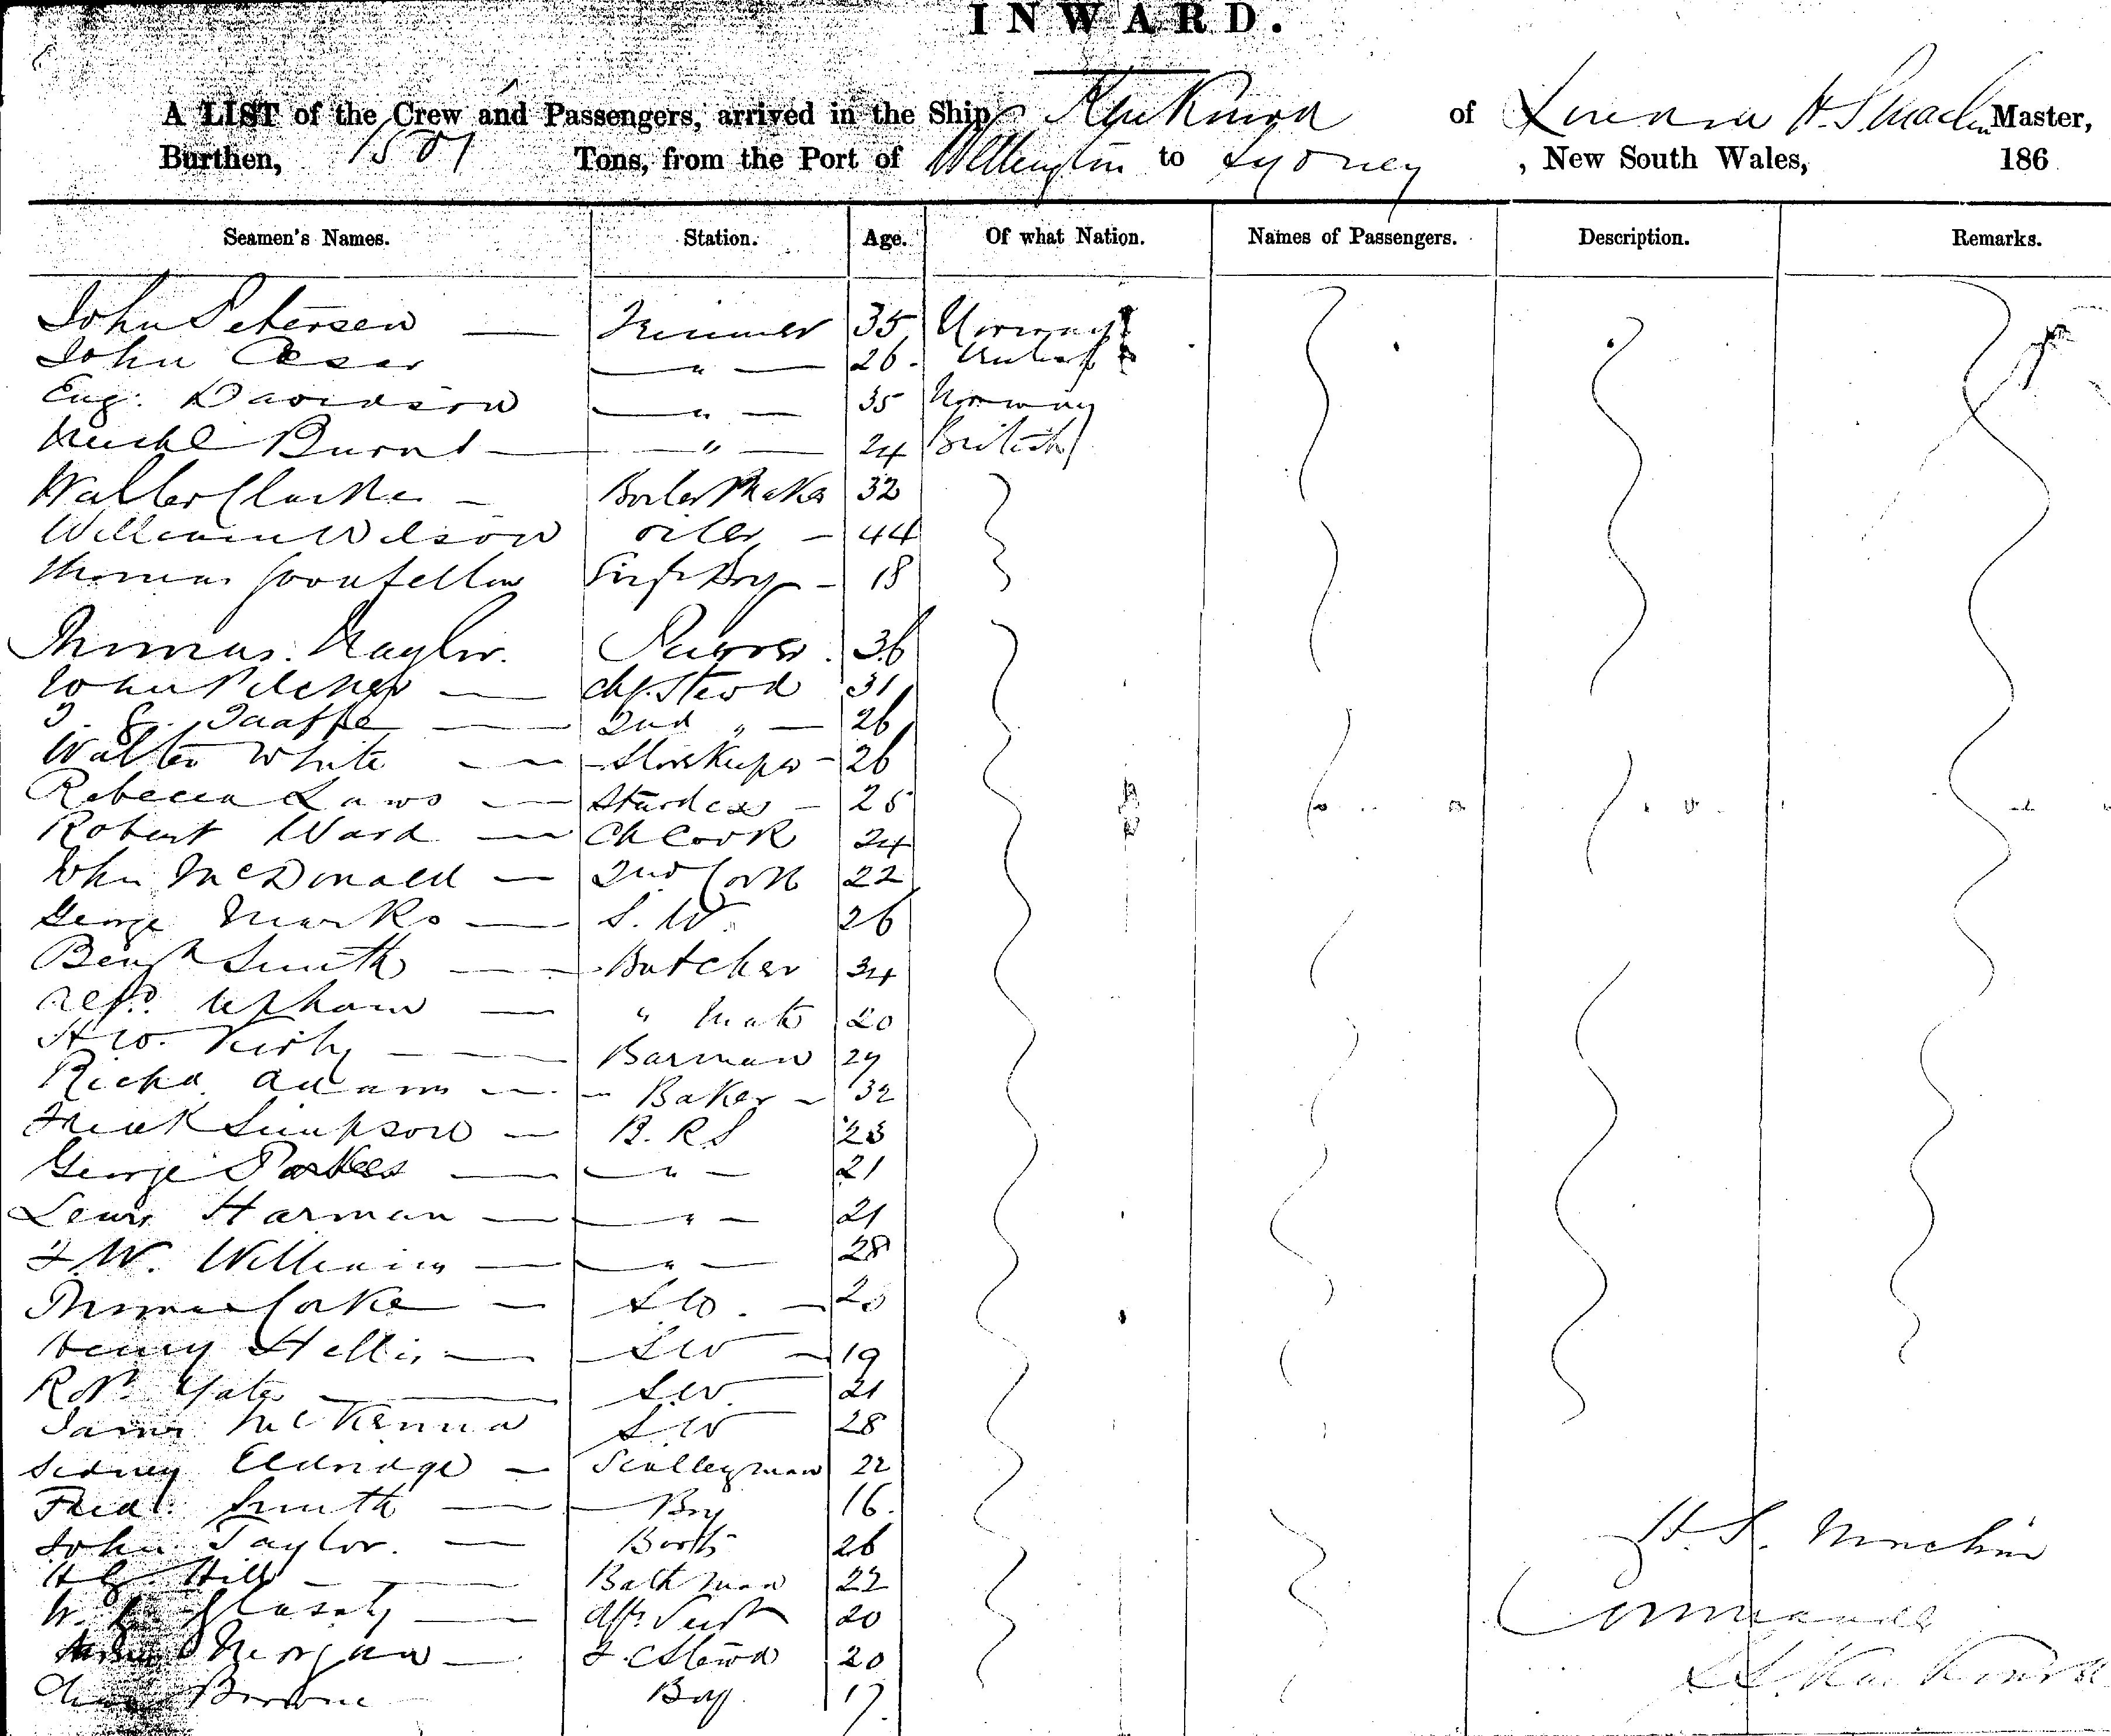 INWARD.
A LIST of the Crew and Passengers, arrived in the Ship of H. S. Master,
Burthen, 1501 Tons, from the Port of Wellington to Sydney, New South Wales, 186
Seamen's Names. Station. Age. Of what Nation. Names of Passengers. Description. Remarks.
John Petersen — Trimmer 35 Norway
John Cesar — " — 26.
Eug. Davidson — " — 35 Norway
Michl Burns — " — 24 British
Walter Clarke — Boiler Maker 32
William Wilson oiler — 44
Thomas Goodfellow Boy — 18
Thomas Naylor. Purser. 36
John Pilcher — Chf. Stewd 31
Taaffe — 2nd " — 26
Walter White — Storekeeper — 26
Rebecca Laws — Stewardess — 25
Robert Ward — Ch Cook 24
John McDonald — 2nd Cook 22
George Marks — S. W. 26
Benjn Smith — Butcher 34
Alfd. Upham — " Mate 20
H W. Kirby — Barman 29
Richd. Adams — Baker — 32
Frank Simpson — B. R S 23
George Parkes — " — 21
Lewis Harman — " — 21
F. W. Williams — " — 28
Thomas Cake — S W. —
Henry Hellis — S W — 19
Robt. Yates — S. W. 21
James McKenna S. W 28
Sidney Eldridge — Sculleyman 22
Fredk. Smith — Boy 16.
John Taylor. — Boots 26
H G. Hill — Bath man 22
W. — 20
Morgan — Stewd 20
Browne Boy. 17.
H. S. Minchin
Commander